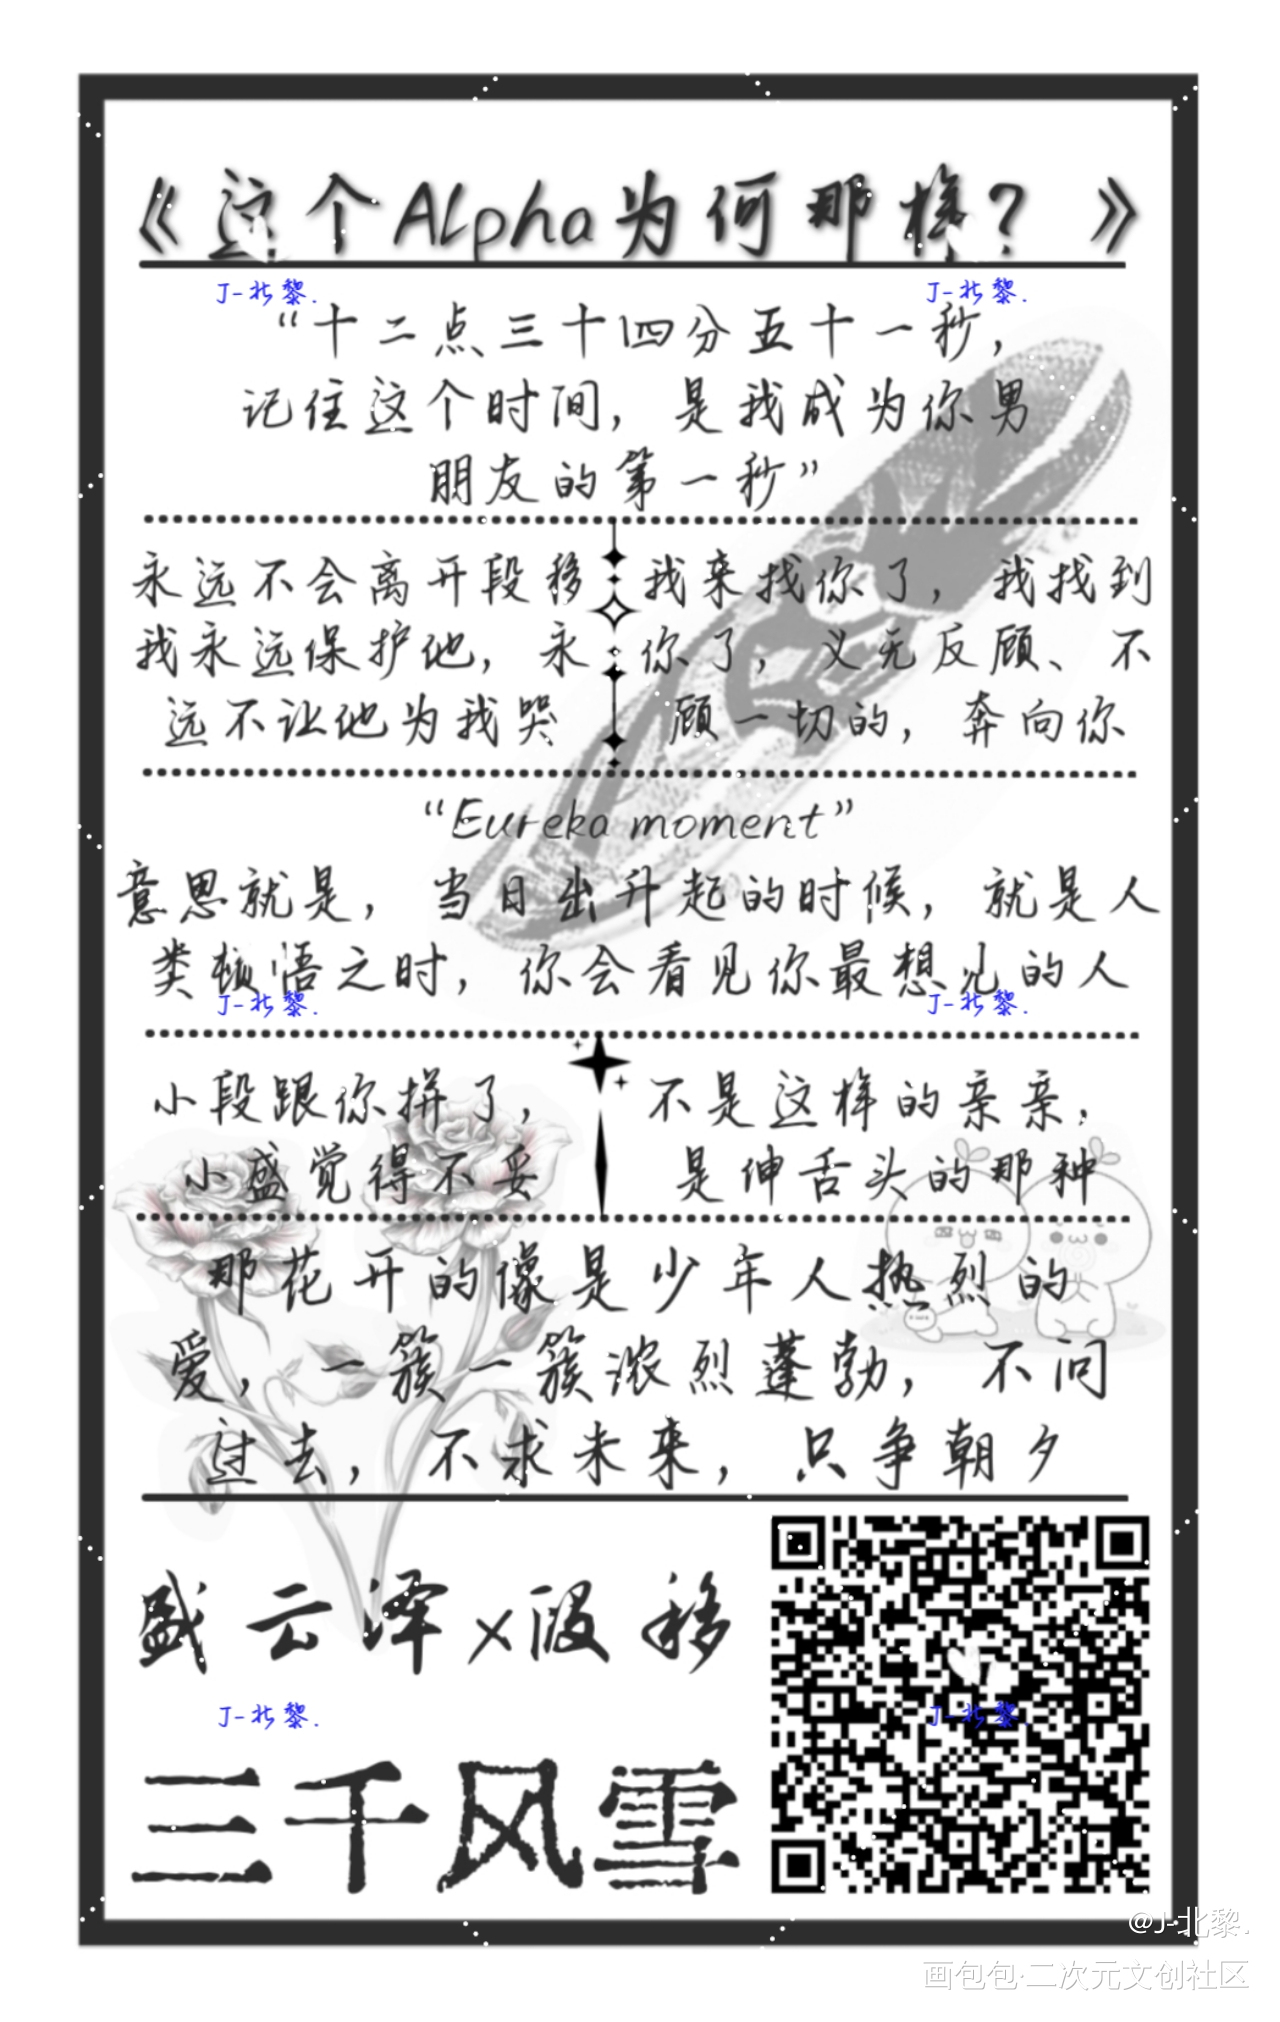 《这个Alpha为何那样？》
J-北黎.
J-北黎.
“十二点三十四分五十一秒，
记住这个时间，是我成为你男
朋友的第一秒”
永远不会离开段移
我永远保护他，永
远不让他为我哭
我来找你了，我找到
你了，义无反顾、不
顾一切的，奔向你
“Eureka moment”
意思就是，当日出升起的时候，就是人
类顿悟之时，你会看见你最想见的人
J-北黎.
J-北黎.
小段跟你拼了，
小盛觉得不妥
不是这样的亲亲，
是伸舌头的那种
那花开的像是少年人热烈的
爱，一簇一簇浓烈蓬勃，不问
过去，不求未来，只争朝夕
盛云泽×段移
J-北黎.
J-北黎.
三千风雪
@J-北黎.
画包包·二次元文创社区